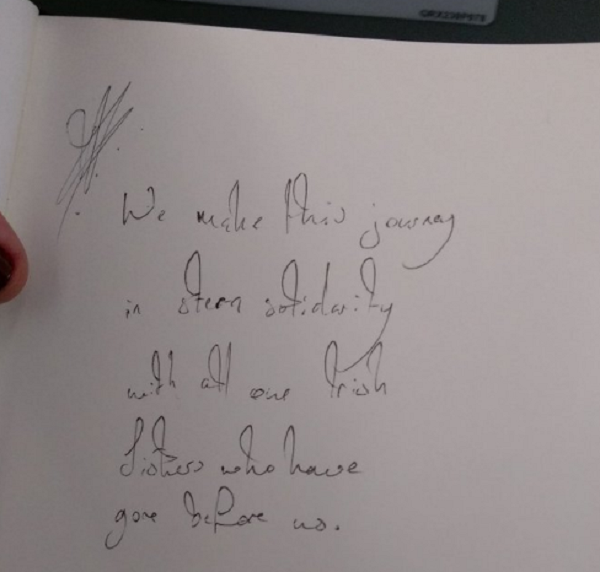 We make this journey
in stern solidarity
with all our Irish
Sisters who have
gone before us.